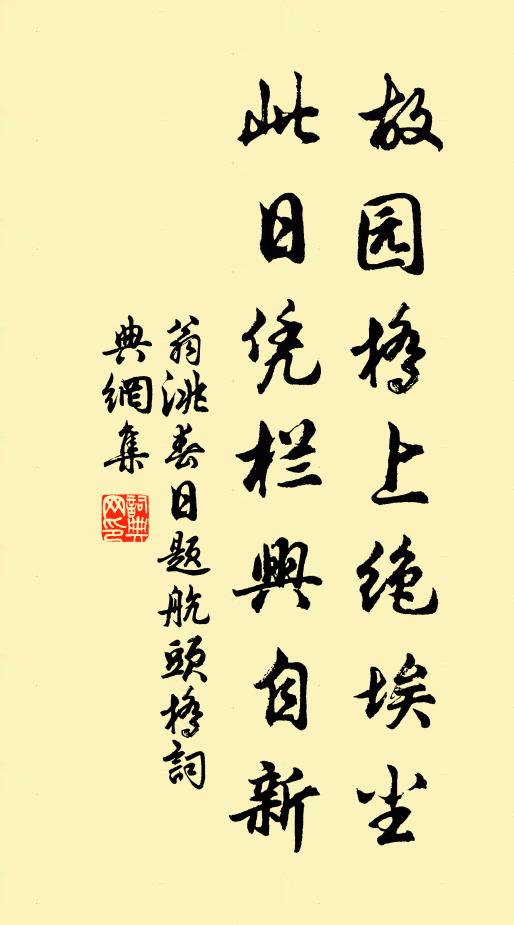 故园橋上绝埃尘
此日凭栏興自新
翁洮春日题航頭橋詞
典網集
詞典網印